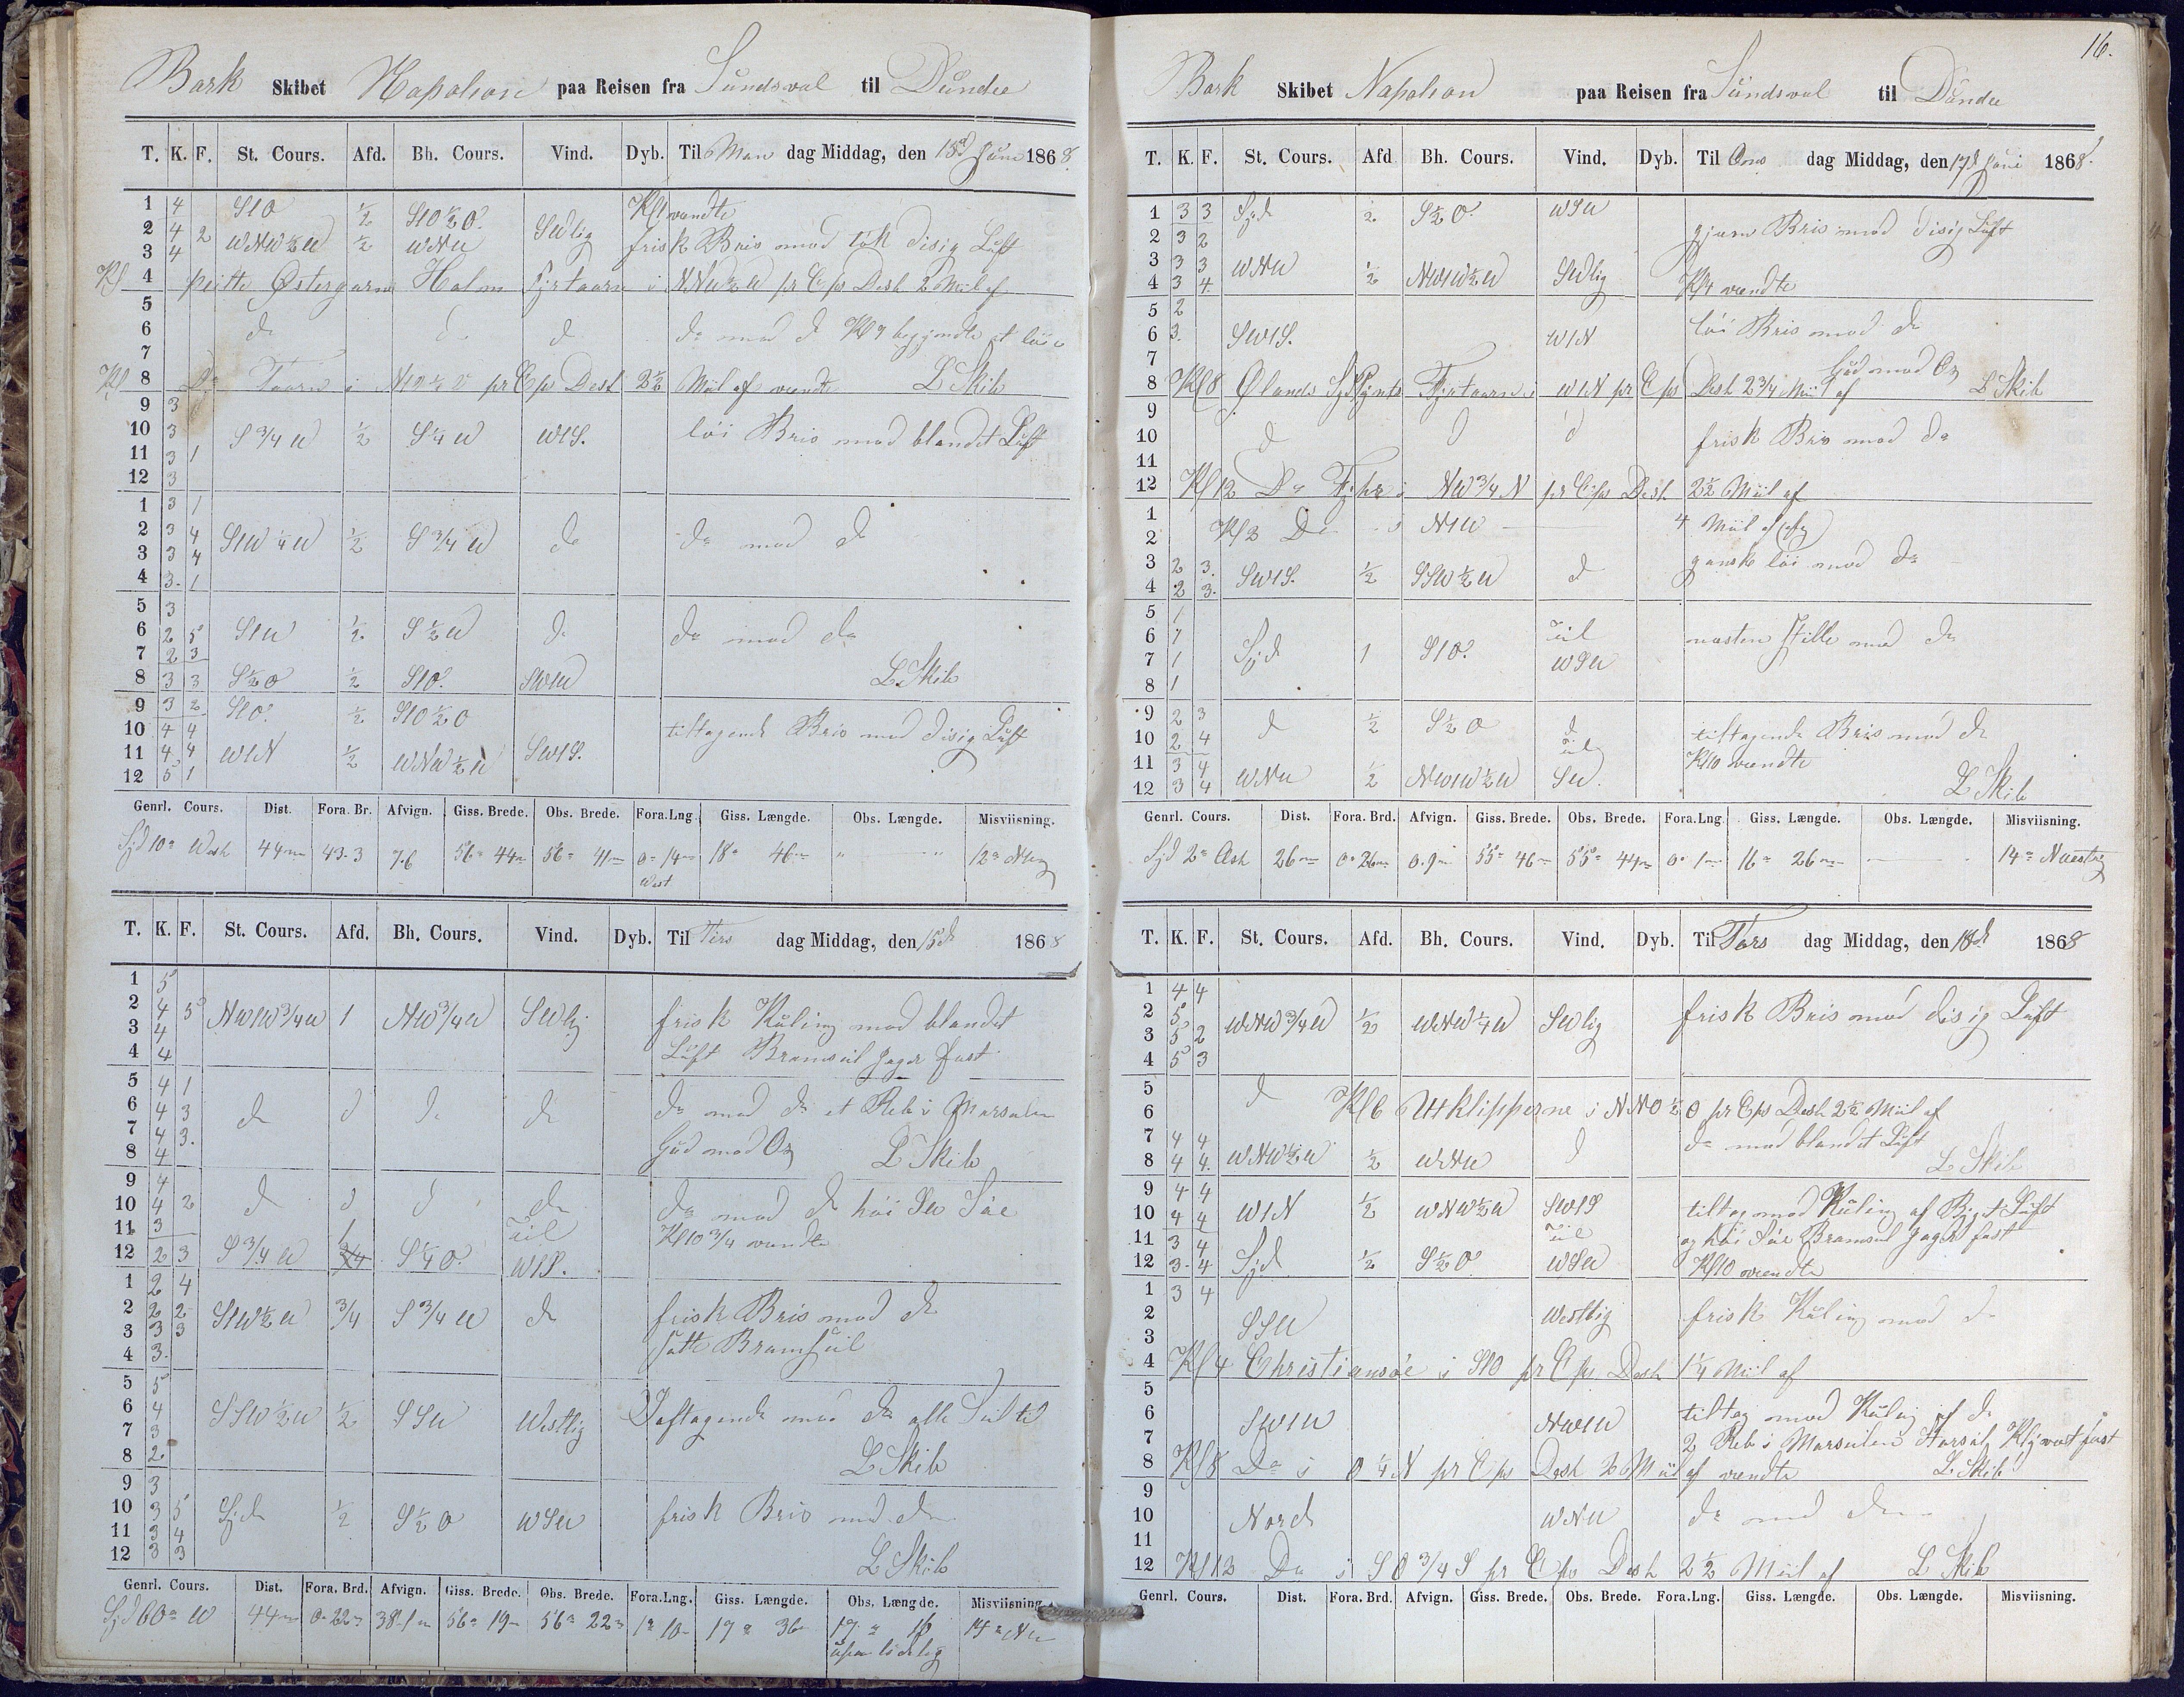 Bark Skibet Napoleon paa Reisen fra Sundsval til Dundee
T. K. F. St. Cours. Afd. Bh. Cours. Vind. Dyb. Til Man dag Middag, den 15d Juni 1868.
1 4 S1O ½ S1O½O. Kl 1 vendte
2 4 2 WNW½W ½ WNW SWlig frisk Bris med tyk disig Luft
3 4
Kl 4 peilte Østergarns Holm Fyrtaarn i NNW½W pr Cps Dest 2 Miil af
5
6 d d d do med d Kl 7 begyndte at løie
7
Kl 8 Do Taarn i pr Cps Dest 2½ Miil af vendte L Skib
9 3
10 3 S¾W ½ S¼W W1S. løi Bris med blandet Luft
11 3 1
12 3
1 3 1
2 3 4 S1W¼W ½ S¾W do do med d
3 3 4
4 3 1
5 3
6 2 5 S1W ½ S½W d do med do
7 2 3
8 3 3 S½O ½ S1O. SW1W L Skib
9 3 2 S1O. ½ S1O½O
10 4 4 tiltagende Bris med disig Luft
11 4 4 W1N ½ WNW½W SW1S.
12 5 1
Genrl. Cours. Dist. Fora. Br. Afvign. Giss. Brede. Obs. Brede. Fora.Lng. Giss. Længde. Obs. Længde. Misviisning.
Syd 10° West 44m 43.3 7.6 56° 44m 56° 41m 0° 14m West 18° 46m " " 12°
T. K. F. St. Cours. Afd. Bh. Cours. Vind. Dyb. Til Tirs dag Middag, den 16d 1868
1 5
2 4 5 NW1W¾W 1 NW¾W SWlig frisk Kuling med blandet
3 4
4 4 Luft Bramseil Jager fast
5 4 1
6 4 3 d d d d do med do et Reb i Marseilen
7 4 3
8 4 Gud med Os L Skib
9 4
10 4 2 d d d do do med d høi SW Søe
11 3 til Kl 10¾ vendte
12 2 3 S¾W 1 S¼O. W1S.
1 2 4
2 2 2 S1W½W ¾ S¾W d frisk Bris med d
3 3 3 satte Bramseil
4 3
5 5
6 4 SSW½W ½ SSW Westlig Jaftagende med do alle Seil til
7 3
8 2 L Skib
9 3
10 3 5 Syd ½ S½O WSW frisk Bris med do
11 3 4
12 3 3 L Skib
Genrl. Cours. Dist. Fora. Brd. Afvign. Giss. Brede. Obs. Brede. Fora.Lng. Giss. Længde. Obs. Længde. Misviisning.
Syd 60° W 44m 0° 22m 38.1m 56° 19m 56° 22m 1° 10m 17° 36 17° 16 14° NW
upaalidelig
16.
Bark Skibet Napoleon paa Reisen fra Sundsval til Dundee
T. K. F. St. Cours. Afd Bh. Cours. Vind. Dyb. Til Ons dag Middag, den 17d Juni 1868.
1 3 3 Syd ½ S½O. WSW
2 3 2 gjævn Bris med disig Luft
3 3 3 WNW ½ NW1W½W SWlig
4 3 4 Kl 4 vendte
5 2
6 3 SW1S. W1N løi Bris med do
7 Gud med Os
8 Kl 8 Ølands Syd Pynts Fyrtaarn i W1N pr Cps Dest 2¾ Miil af L Skib
9
10 d d d frisk Bris med do
11
12 Kl 12 Do Fyhr i NW¾N pr Cps Dest 2½ Miil af
1 Kl 2 Do i N1W 4 Miil af
2
3 2 3 ganske løi med do
4 2 3 SW1S. ½ SSW½W d
5 1
6 1 til næsten stille med do
7 1 Syd 1 S1O. WSW
8 1
9 2 3 d ½ S½O d
10 2 4 til tiltagende Bris med do
11 3 4 Kl 10 vendte
12 3 4 WNW ½ NW1W½W SW. L Skib
Genrl. Cours. Dist. Fora. Brd. Afvign. Giss. Brede. Obs. Brede. Fora.Lng. Giss. Længde. Obs. Længde. Misviisning.
Syd 2° Ost 26m 0° 26m 0.9m 55° 46m 55° 44m 0° 1m 16° 26m
T. K. F. St. Cours. Afd. Bh. Cours. Vind. Dyb. Til Tors dag Middag, den 18d 1868
1 4 4
2 5 WNW¾W ½ WNW¼W SWlig frisk Bris med disig Luft
3 5 2
4 5 3
5 d
6 Kl 6 Utklipperne i NNO½O pr Cps Dest 2½ Miil af
7 4 4 do med blandet Luft
8 4 4 WNW½W ½ WNW d L Skib
9 4 4
10 4 4 W1N ½ WNW½W SW1S tiltag med Kuling af Bygt Luft
11 3 4 til og høi Søe Bramseil Jager fast
12 3 4 Syd ½ S½O WSW Kl 10 vendte
1 3 4
2 SSW Westlig frisk Kuling med do
3
4 Kl 4 Christiansøe i S1O pr Cps Dest 1¼ Miil af
5
6 SW1W NW1W tiltag med Kuling af d
7 2 Reb i Marseilene Storseil Klyvert fast
8 Kl 8 Do i O¼N pr Cps Dest 2 Miil af vendte L Skib
9
10 Nord WNW do med do
11
12 Kl 12 Do i SO¾S pr Cps Dest 2½ Miil af L Skib
Genrl. Cours. Dist. Fora. Brd. Afvign. Giss. Brede. Obs. Brede. Fora.Lng. Giss. Længde. Obs. Længde. Misviisning.